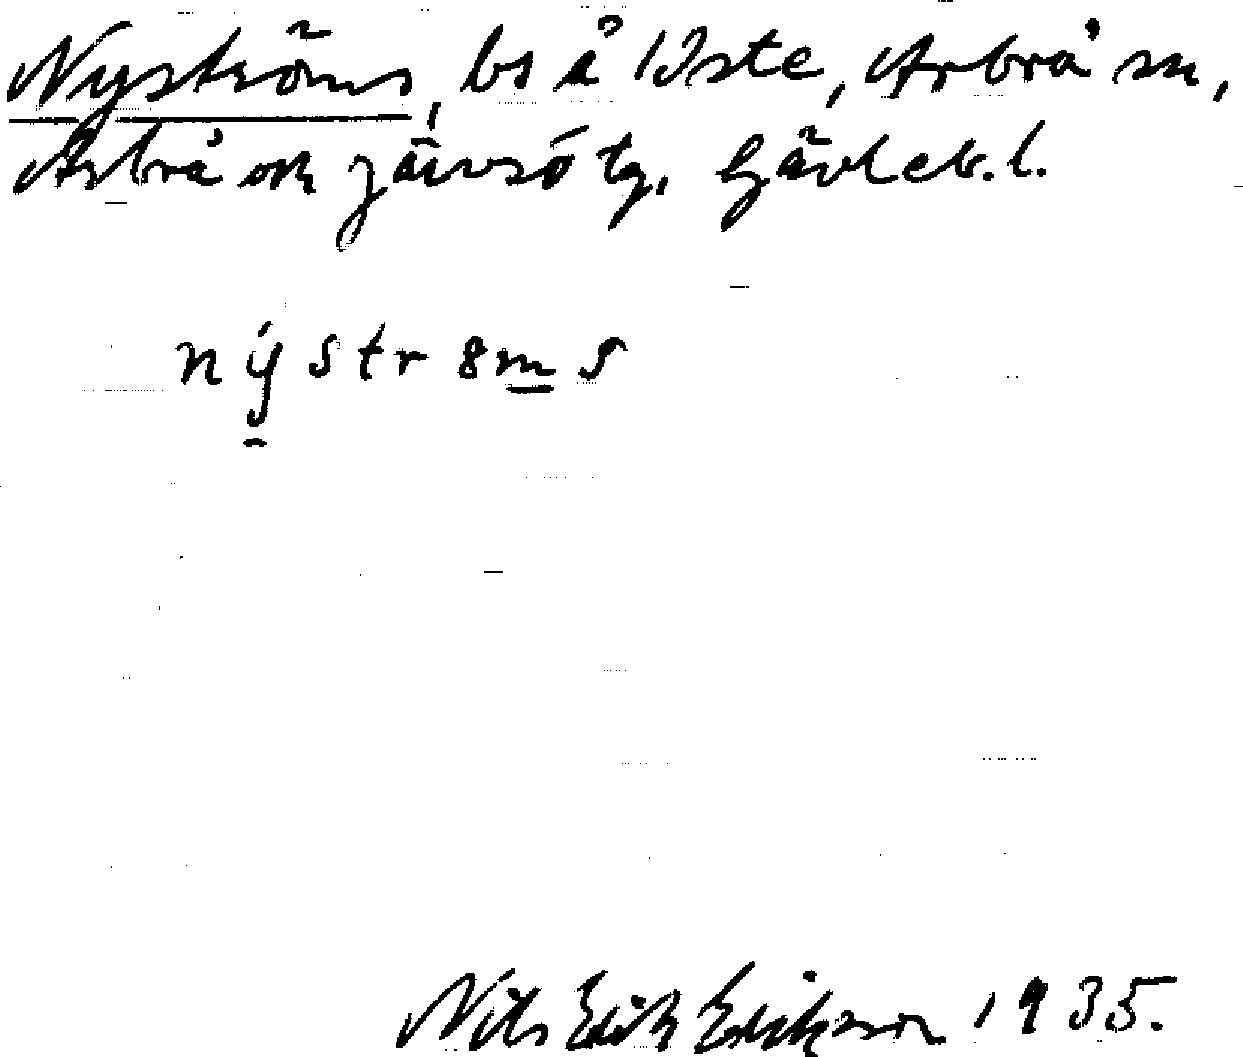 Nyströms, bs å Iste, Arbrå sn,
Arbrå och Järvsö tg. Gävleb. l.
nýstr8ms
Nils Erik Erikson 1935.